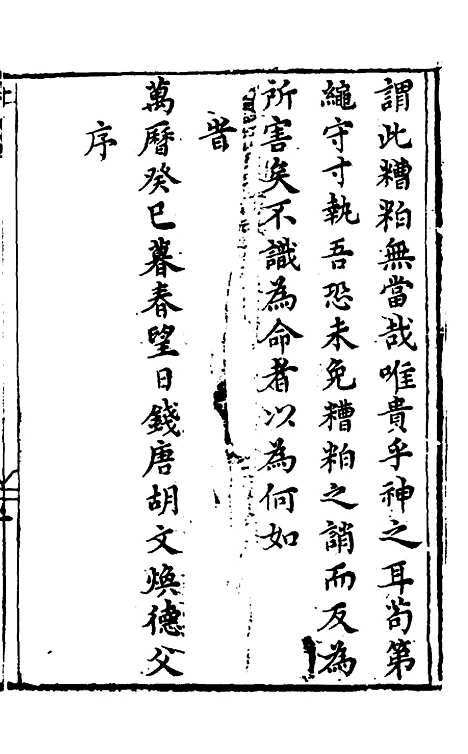 謂此糟粕無當哉唯貴乎神之耳茍第
繩守寸執吾恐未免糟粕之誚而反為
所害矣不識為命者以為何如
旹
萬曆癸巳暮春望日錢唐胡文煥德父
序